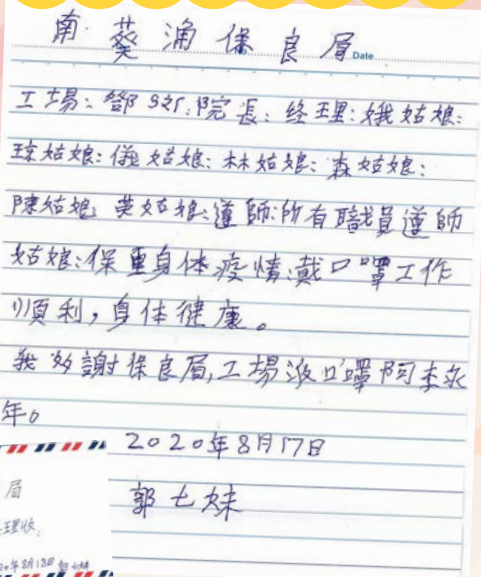 南葵涌保良局
Date
工場:鄧Sir:院長:经理:娥姑娘:
琼姑娘:儀姑娘:林姑娘:森姑娘:
陳姑娘:英姑娘:導師:所有職員導師
姑娘:保重身体疫情:戴口罩工作
順利,身体健康。
我多謝保良局,工場派口罩阿李永
年。
2020年8月17日
郭七妹
局
理收:
20年8月18日郭七妹